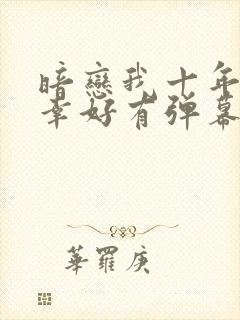 暗戀我十年
幸好有弹幕
華羅庚